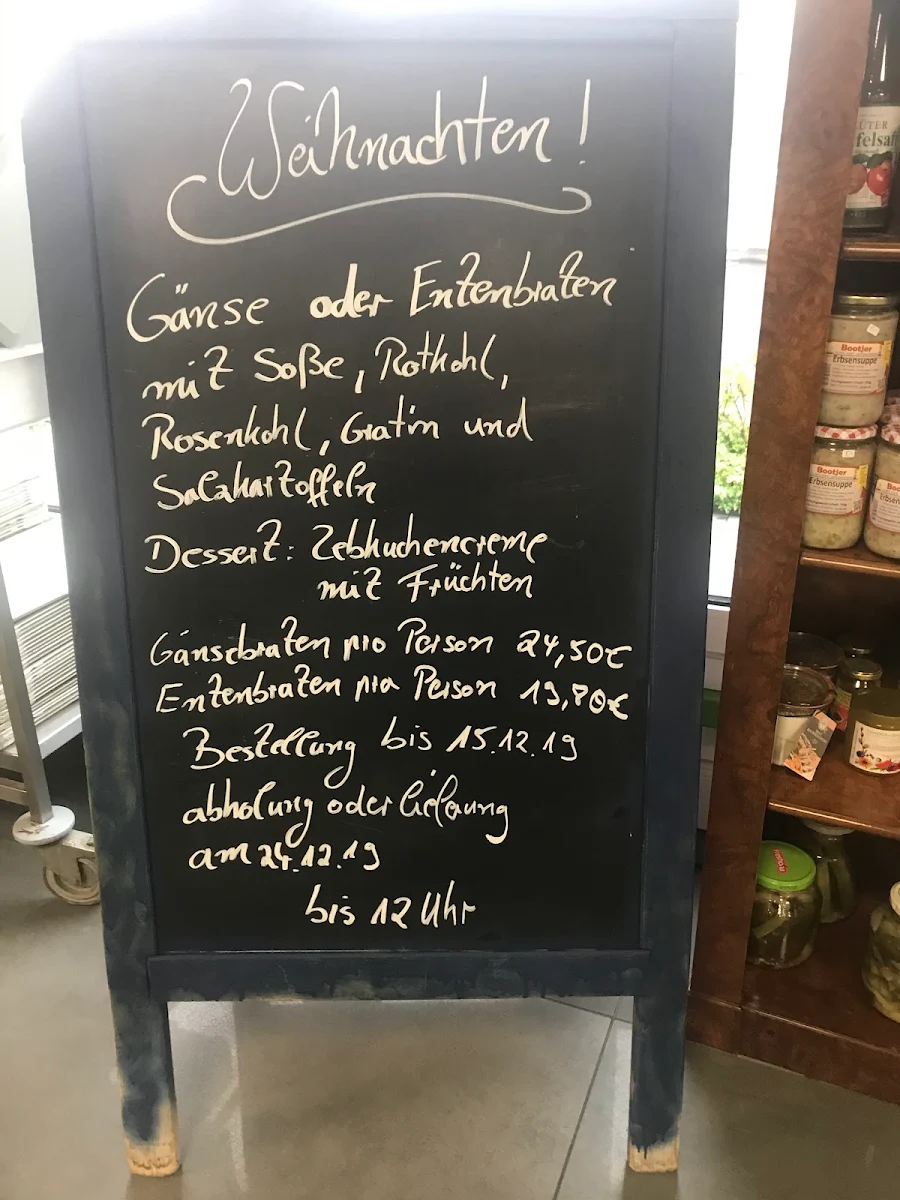 Weihnachten!
Gänse oder Entenbraten
mit Soße, Rotkohl,
Rosenkohl, Gratin und
Salzkartoffeln
Dessert: Lebkuchencreme
mit Früchten
Gänsebraten pro Person 24,50€
Entenbraten pro Person 19,80€
Bestellung bis 15.12.19
abholung oder lieferung
am 24.12.19
bis 12 Uhr
felsaf
Bootjer
Erbsensuppe
Bootjer
Erbsensuppe